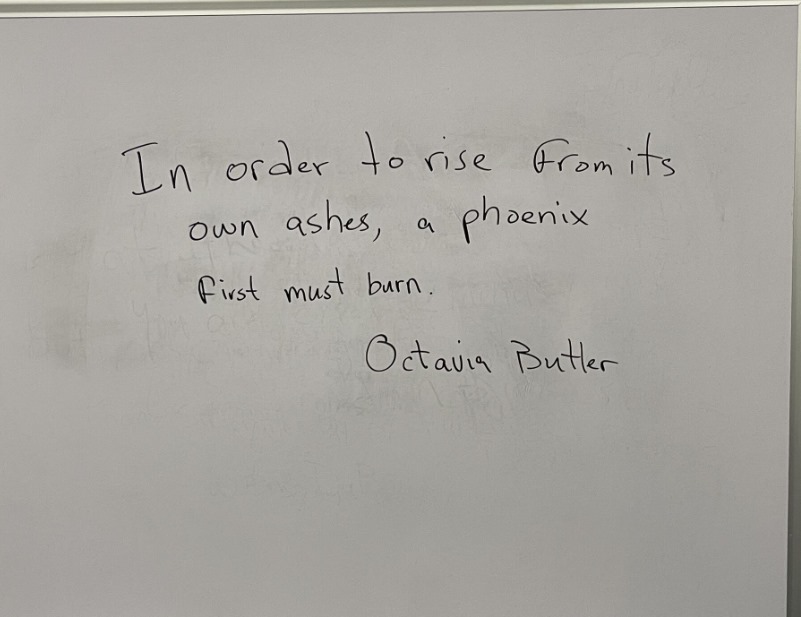 In order to rise from its
own ashes, a phoenix
first must burn.
Octavia Butler